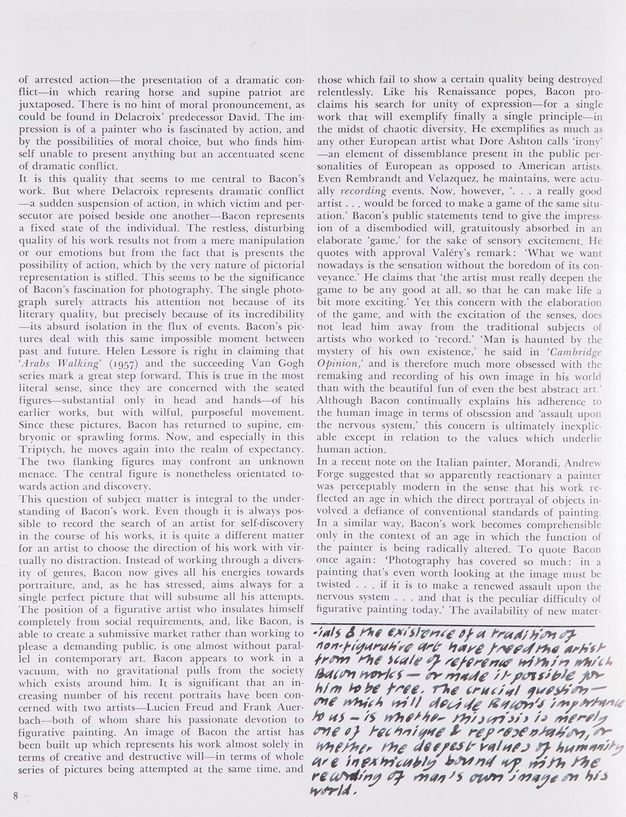 of arrested action—the presentation of a dramatic con-
flict—in which rearing horse and supine patriot are
juxtaposed. There is no hint of moral pronouncement, as
could be found in Delacroix' predecessor David. The im-
pression is of a painter who is fascinated by action, and
by the possibilities of moral choice, but who finds him-
self unable to present anything but an accentuated scene
of dramatic conflict.
It is this quality that seems to me central to Bacon's
work. But where Delacroix represents dramatic conflict
—a sudden suspension of action, in which victim and per-
secutor are poised beside one another—Bacon represents
a fixed state of the individual. The restless, disturbing
quality of his work results not from a mere manipulation
or our emotions but from the fact that is presents the
possibility of action, which by the very nature of pictorial
representation is stifled. This seems to be the significance
of Bacon's fascination for photography. The single photo-
graph surely attracts his attention not because of its
literary quality, but precisely because of its incredibility
—its absurd isolation in the flux of events. Bacon's pic-
tures deal with this same impossible moment between
past and future. Helen Lessore is right in claiming that
'Arabs Walking' (1957) and the succeeding Van Gogh
series mark a great step forward. This is true in the most
literal sense, since they are concerned with the seated
figures—substantial only in head and hands—of his
earlier works, but with wilful, purposeful movement.
Since these pictures, Bacon has returned to supine, em-
bryonic or sprawling forms. Now, and especially in this
Triptych, he moves again into the realm of expectancy.
The two flanking figures may confront an unknown
menace. The central figure is nonetheless orientated to-
wards action and discovery.
This question of subject matter is integral to the under-
standing of Bacon's work. Even though it is always pos-
sible to record the search of an artist for self-discovery
in the course of his works, it is quite a different matter
for an artist to choose the direction of his work with vir-
tually no distraction. Instead of working through a divers-
ity of genres, Bacon now gives all his energies towards
portraiture, and, as he has stressed, aims always for a
single perfect picture that will subsume all his attempts.
The position of a figurative artist who insulates himself
completely from social requirements, and, like Bacon, is
able to create a submissive market rather than working to
please a demanding public, is one almost without paral-
lel in contemporary art. Bacon appears to work in a
vacuum, with no gravitational pulls from the society
which exists around him. It is significant that an in-
creasing number of his recent portraits have been con-
cerned with two artists—Lucien Freud and Frank Auer-
bach—both of whom share his passionate devotion to
figurative painting. An image of Bacon the artist has
been built up which represents his work almost solely in
terms of creative and destructive will—in terms of whole
series of pictures being attempted at the same time, and
8
those which fail to show a certain quality being destroyed
relentlessly. Like his Renaissance popes, Bacon pro-
claims his search for unity of expression—for a single
work that will exemplify finally a single principle—in
the midst of chaotic diversity. He exemplifies as much as
any other European artist what Dore Ashton calls 'irony'
—an element of dissemblance present in the public per-
sonalities of European as opposed to American artists.
Even Rembrandt and Velazquez, he maintains, were actu-
ally recording events. Now, however, '. . . a really good
artist . . . would be forced to make a game of the same situ-
ation.' Bacon's public statements tend to give the impress-
ion of a disembodied will, gratuitously absorbed in an
elaborate 'game,' for the sake of sensory excitement. He
quotes with approval Valéry's remark: 'What we want
nowadays is the sensation without the boredom of its con-
veyance.' He claims that 'the artist must really deepen the
game to be any good at all, so that he can make life a
bit more exciting.' Yet this concern with the elaboration
of the game, and with the excitation of the senses, does
not lead him away from the traditional subjects of
artists who worked to 'record.' 'Man is haunted by the
mystery of his own existence,' he said in 'Cambridge
Opinion,' and is therefore much more obsessed with the
remaking and recording of his own image in his world
than with the beautiful fun of even the best abstract art.'
Although Bacon continually explains his adherence to
the human image in terms of obsession and 'assault upon
the nervous system,' this concern is ultimately inexplic-
able except in relation to the values which underlie
human action.
In a recent note on the Italian painter, Morandi, Andrew
Forge suggested that so apparently reactionary a painter
was perceptably modern in the sense that his work re-
flected an age in which the direct portrayal of objects in-
volved a defiance of conventional standards of painting.
In a similar way, Bacon's work becomes comprehensible
only in the context of an age in which the function of
the painter is being radically altered. To quote Bacon
once again: 'Photography has covered so much: in a
painting that's even worth looking at the image must be
twisted . . . if it is to make a renewed assault upon the
nervous system . . . and that is the peculiar difficulty of
figurative painting today.' The availability of new mater-
-ials & the existence of a tradition of
non-figurative art have freed the artist
from the scale of reference within which
Bacon works — or made it possible for
him to be free. The crucial question —
one which will decide Bacon's importance
to us — is whether this crisis is merely
one of technique & representation, or
whether the deepest values of humanity
are inextricably bound up with the
recording of man's own image on his
world.